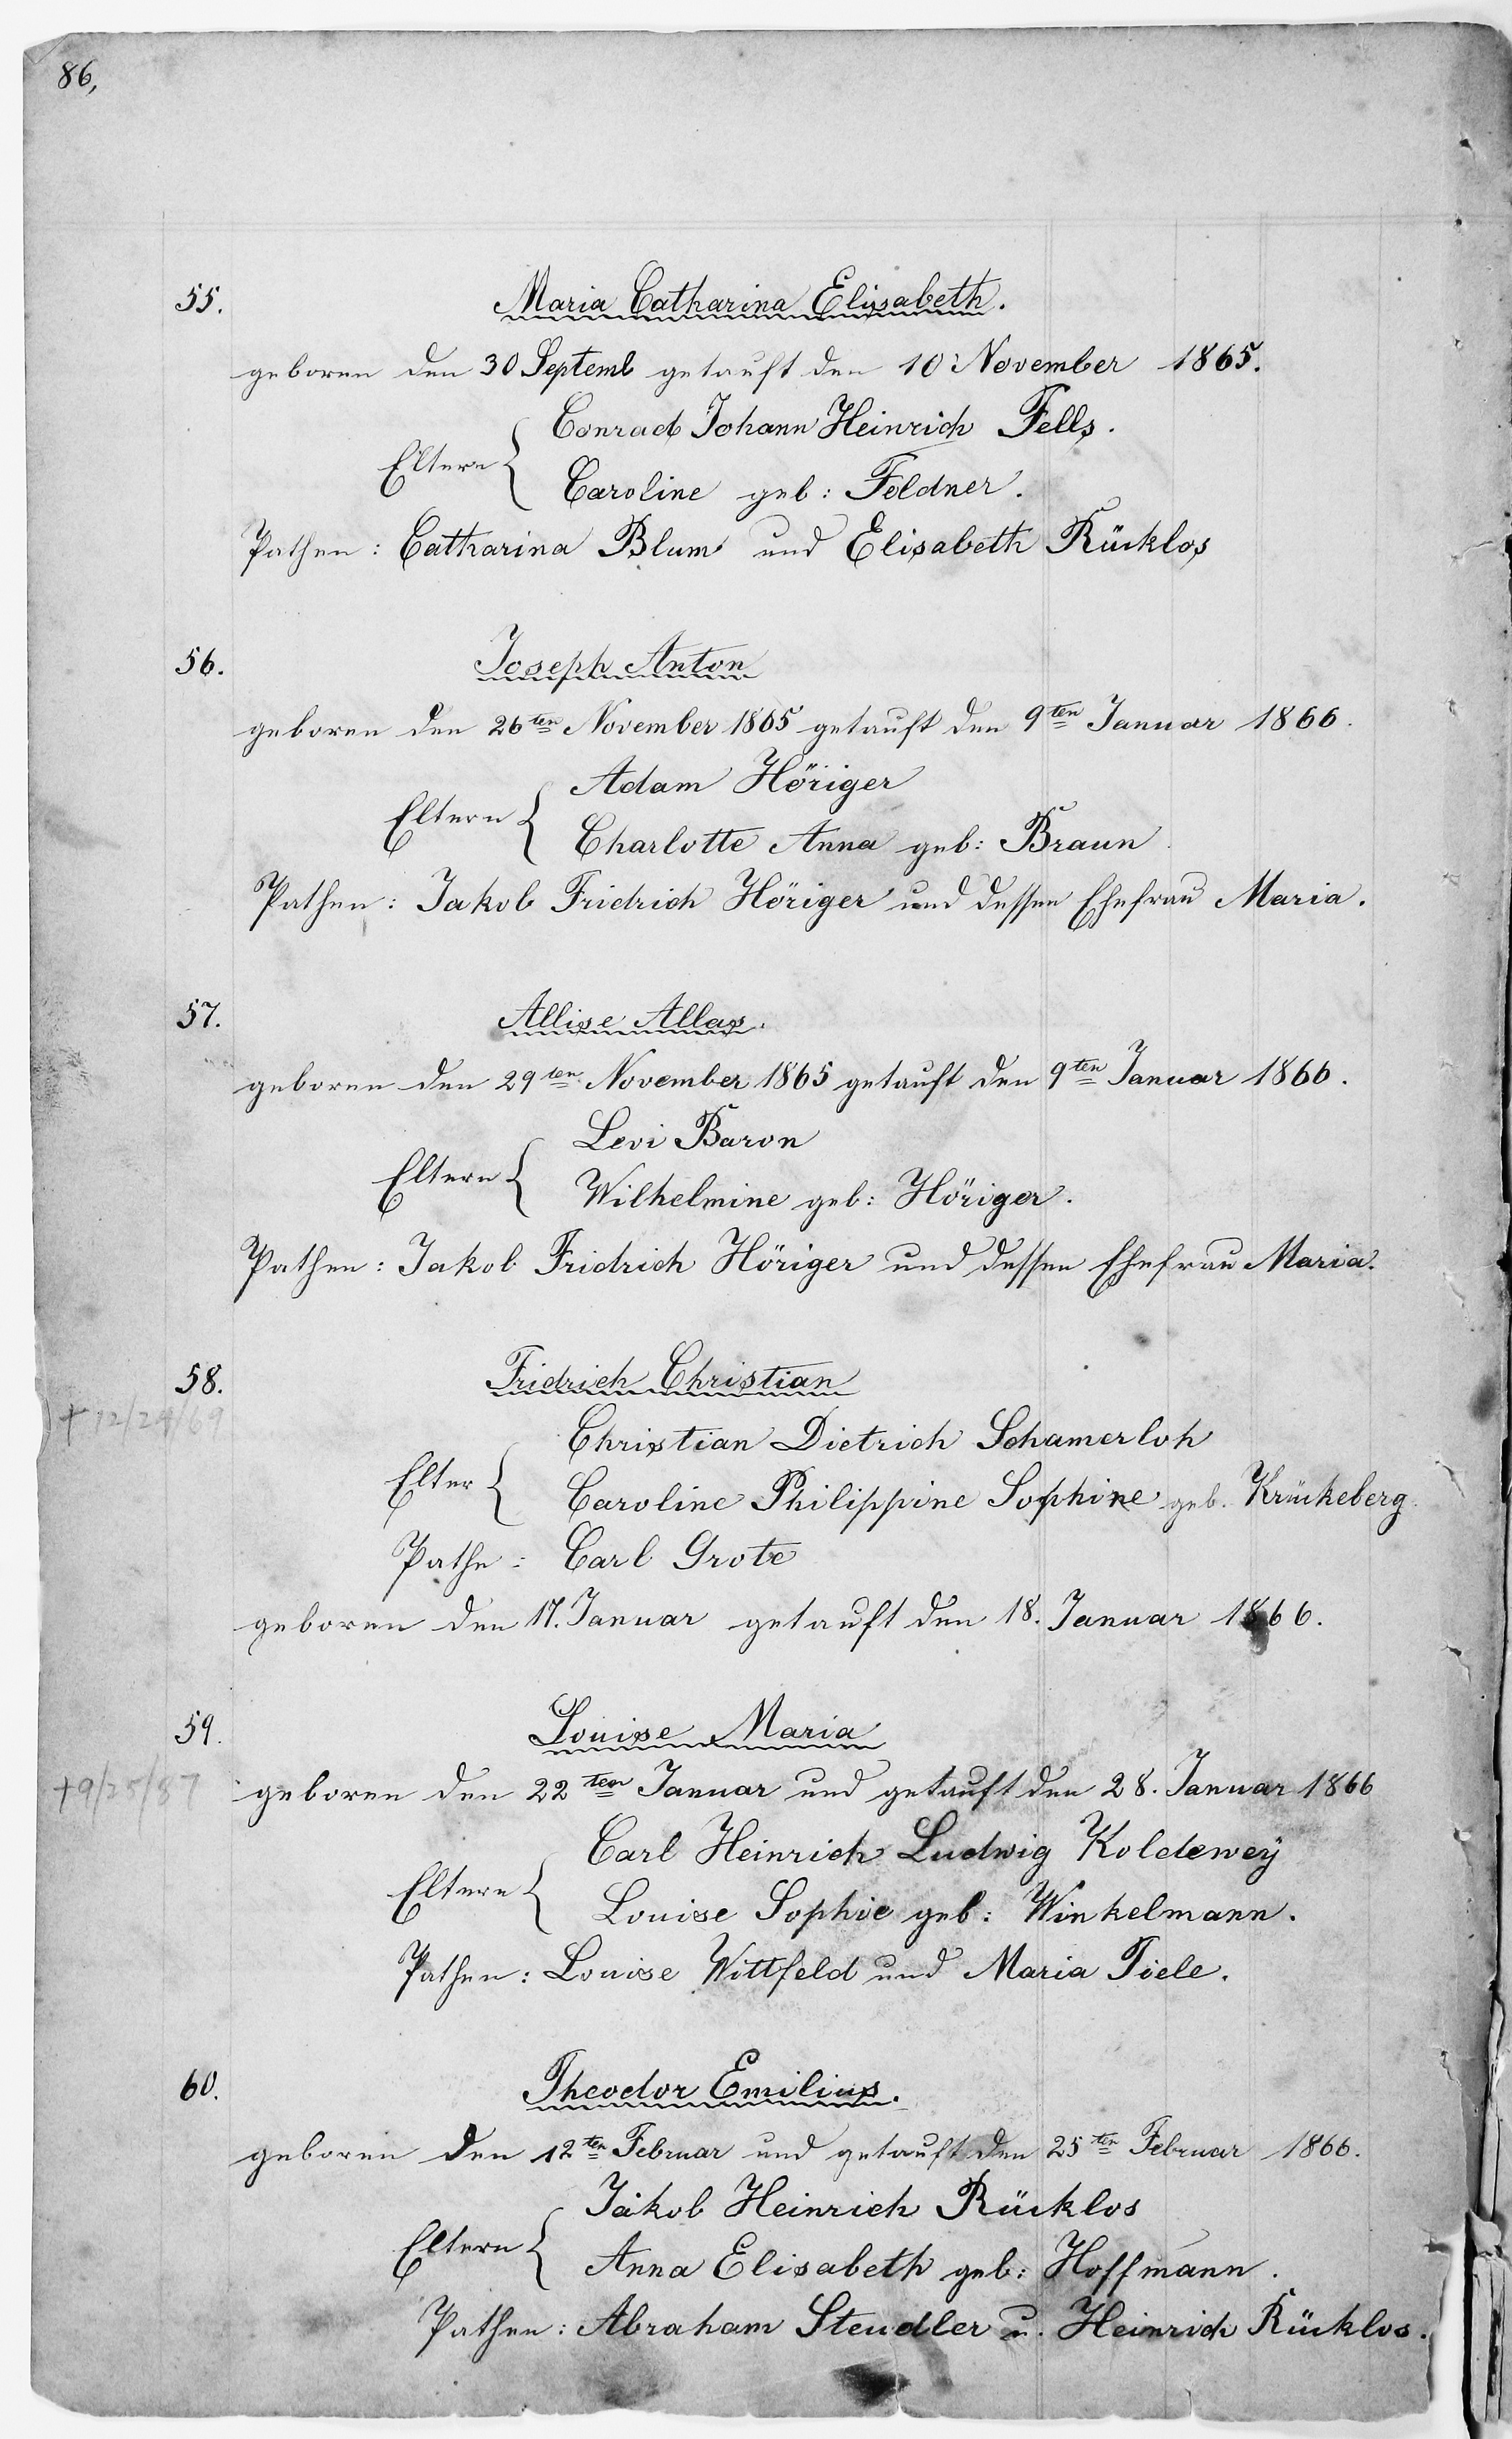 86,
55. Maria Catharina Elisabeth.
geboren den 30 Septemb getauft den 10 November 1865.
Conrad Johann Heinrich Fells.
Eltern {
Caroline geb: Feldner.
Pathen: Catharina Blum und Elisabeth Rücklos
56. Joseph Anton
geboren den 26ten November 1865 getauft den 9ten Januar 1866.
Adam Höriger
Eltern {
Charlotte Anna geb: Braun
Pathen: Jakob Fridrich Höriger und dessen Ehefrau Maria.
57. Allise Allas.
geboren den 29ten November 1865 getauft den 9ten Januar 1866.
Levi Baron
Eltern {
Wilhelmine geb: Höriger.
Pathen: Jakob Fridrich Höriger und dessen Ehefrau Maria.
58. Fridrich Christian
+12/24/69
Christian Dietrich Schamerloh
Elter {
Caroline Philippine Sophine geb. Krückeberg
Pathe: Carl Grote
geboren den 17. Januar getauft den 18. Januar 1866.
59. Louise Maria
+9/25/87
geboren den 22ten Januar und getauft den 28. Januar 1866
Carl Heinrich Ludwig Koldewey
Eltern {
Louise Sophie geb: Winkelmann.
Pathen: Louise Wittfeld und Maria Tiele.
60. Theodor Emilius.
geboren den 12ten Februar und getauft den 25ten Februar 1866.
Jakob Heinrich Rücklos
Eltern {
Anna Elisabeth geb: Hoffmann.
Pathen: Abraham Steudler u. Heinrich Rücklos.